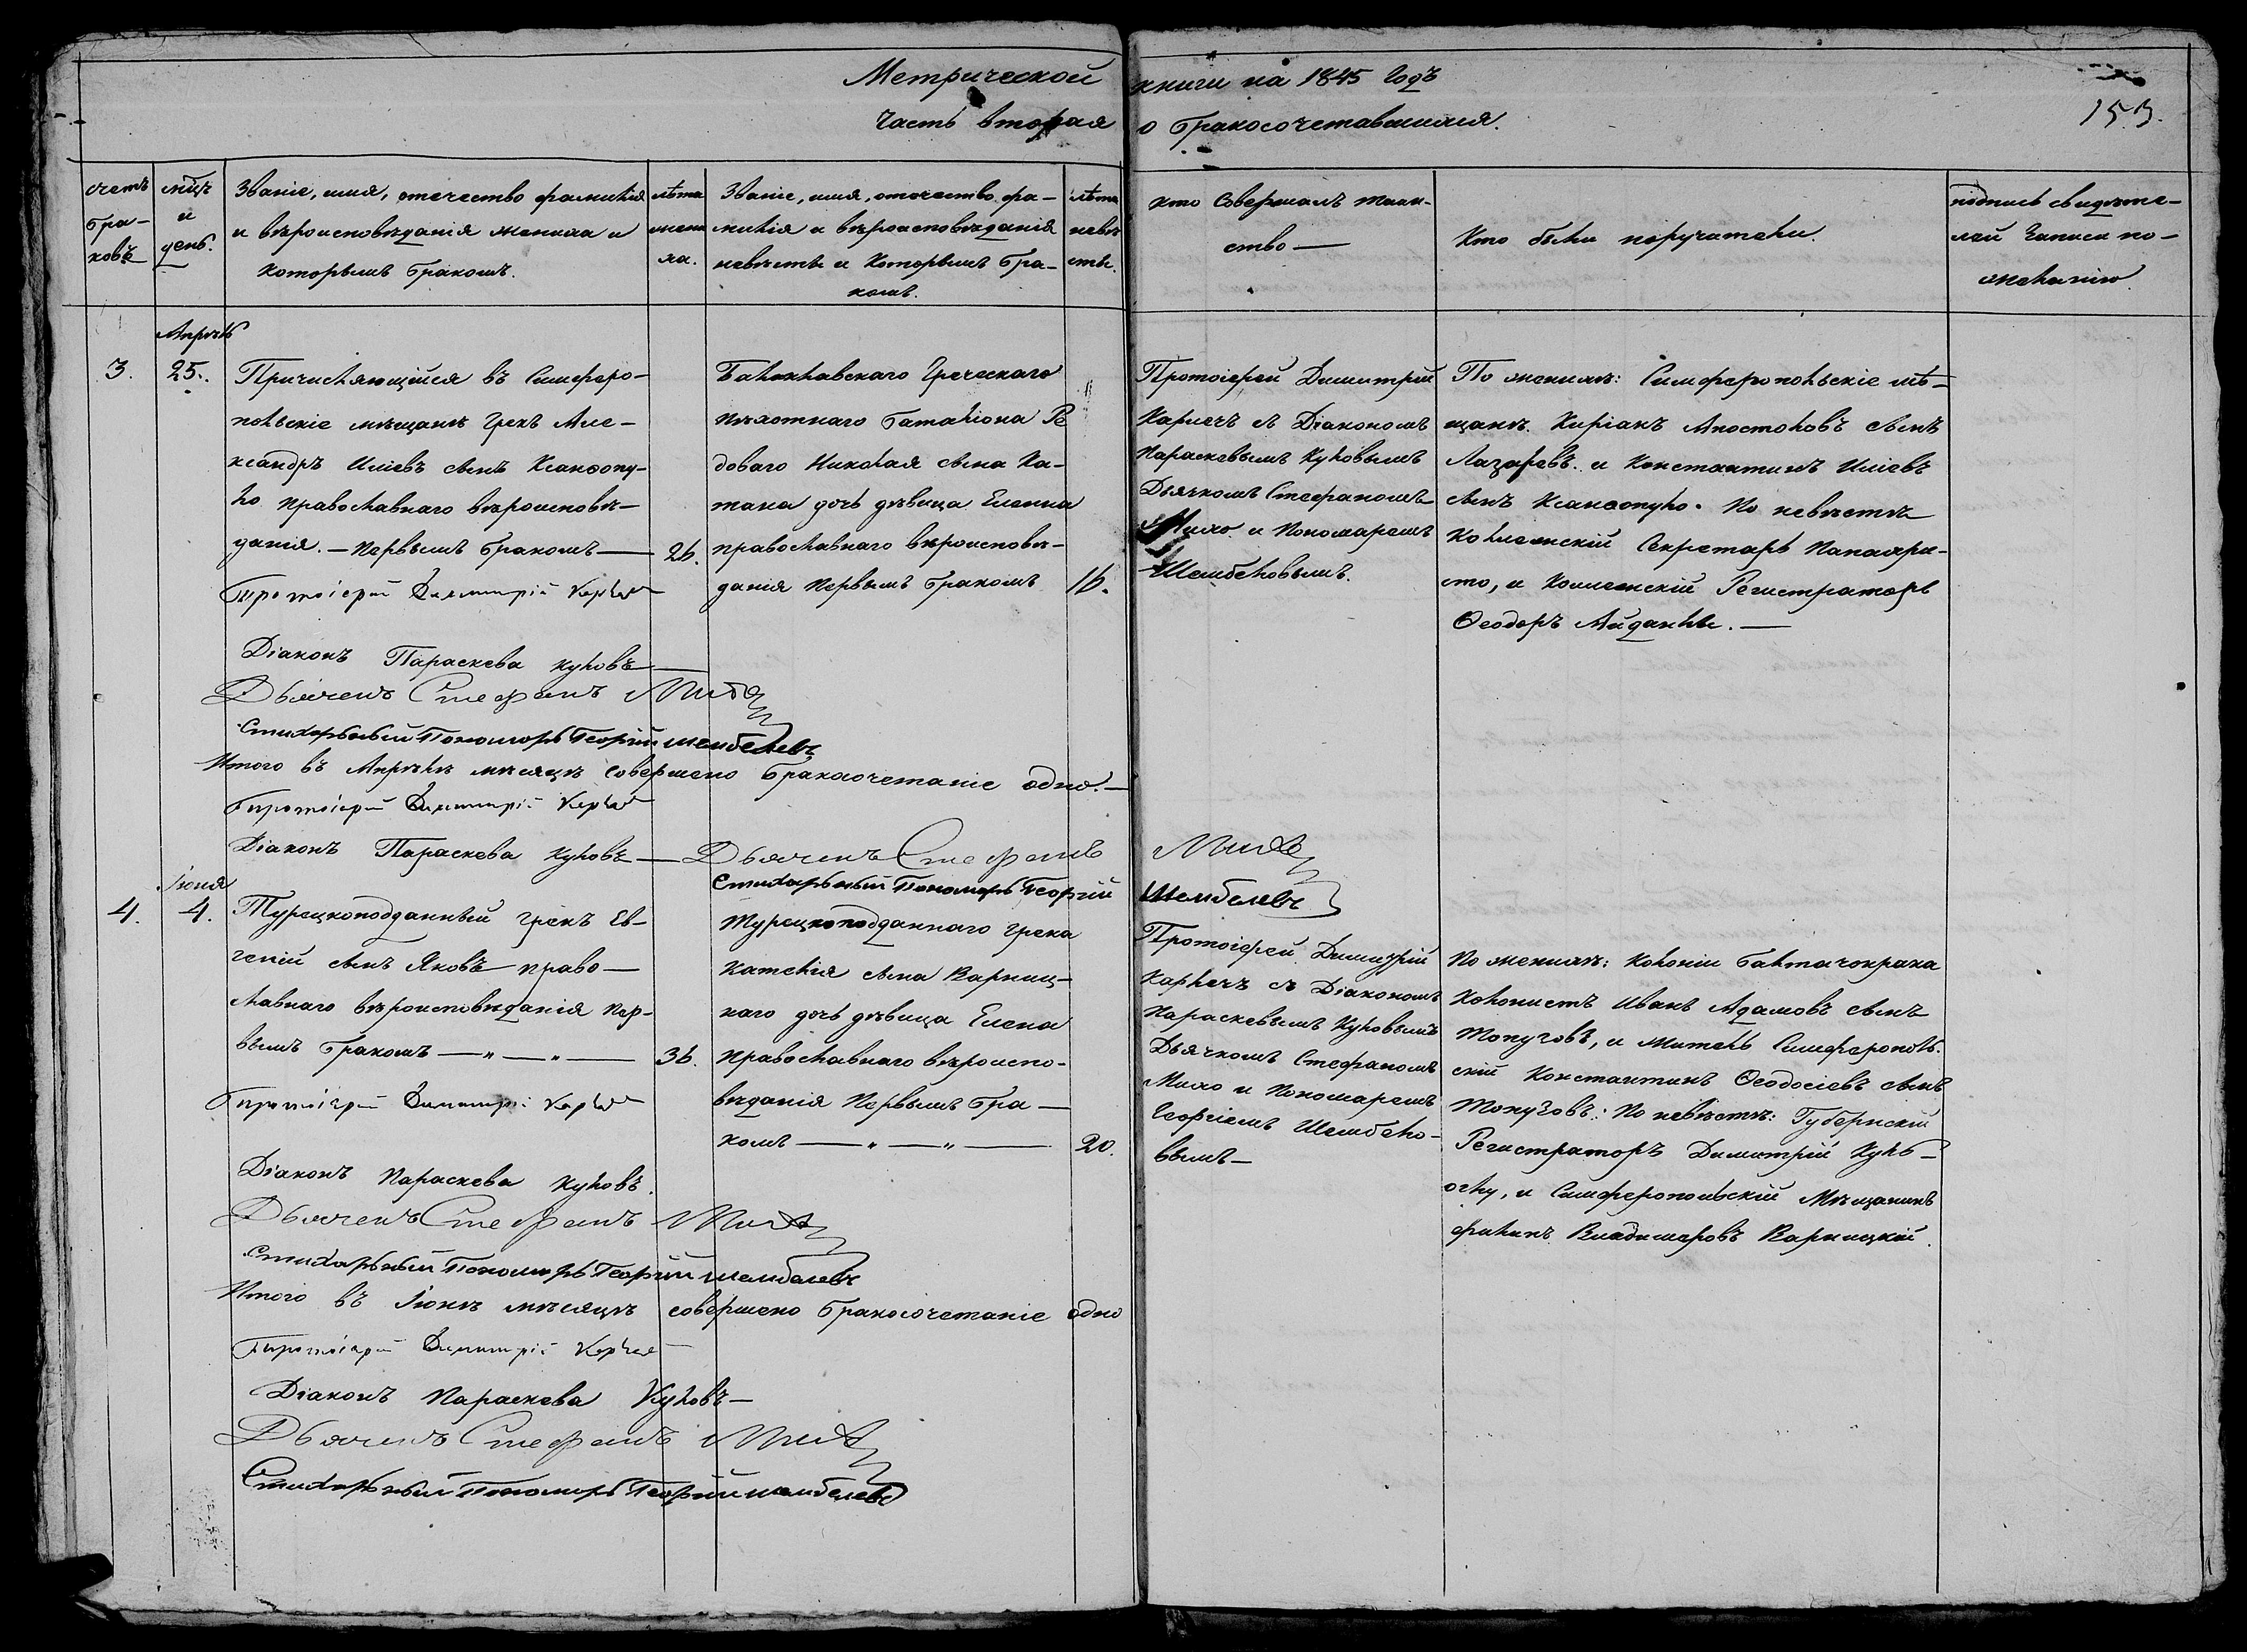 Метрической книги на 1845 годъ
153.
Часть вторая о бракосочетавшихся.
счетъ
бра-
ковъ
мѣцъ
и
день.
Званіе, имя, отечество фамилія
и вѣроисповѣданія жениха и
которымъ бракомъ.
лѣта
жени
ха.
Званіе, имя, отечество, фа-
милія и вѣроисповѣданія
невѣсты и которымъ бра-
комъ.
лѣта
невѣ
сты.
кто совершалъ таин-
ство —
Кто были поручатели.
подпись свидѣте-
лей записи по-
желанію
Апрѣль
3.
25.
Причисляющійся въ Симферо-
польскіе мѣщанъ грекъ Але-
ксандръ Иліевъ сынъ Ксанфопу-
ло православнаго вѣроисповѣ-
данія. — первымъ бракомъ —
26.
Балаклавскаго Греческаго
пѣхотнаго баталіона Ря
доваго Николая сына Ка-
тана дочь дѣвица Еленка
православнаго вѣроисповѣ-
данія первымъ бракомъ
16.
Протоіерей Димитрій
Карпечъ съ Діакономъ
Параскевымъ Куловымъ
Дьячкомъ Стефаномъ
Михо и Пономаремъ
Шембеловымъ.
По женихѣ: Симферопольскіе мѣ-
щанъ. Киріакъ Апостоловъ сынъ
Лазаревъ. и Константинъ Иліевъ
сынъ Ксанфопуло. По невѣстѣ
Коллежскій Секретарь Папахри-
сто, и Коллежскій Регистраторъ
Ѳеодоръ Айданлы. —
Протоіерей Димитрій
Діаконъ Параскева Куловъ
Дьячекъ Стефанъ Михо
Стихарьный Пономарь Георгій Шембелевъ
Итого въ Апрѣлѣ мѣсяцѣ совершено бракосочетаніе одно. —
Протоіерей Димитрій
Діаконъ Параскева Куловъ — Дьячекъ Стефанъ Михо
Стихарьный Пономарь Георгій Шембелевъ
Іюня
4.
4.
Турецкоподданный грекъ Ев-
геній сынъ Яковъ право-
славнаго вѣроисповѣданія пер-
вымъ бракомъ — „ — „ —
36.
Турецкоподданнаго грека
Кателія сына Варниц-
каго дочь дѣвица Елена
православнаго вѣроиспо-
вѣданія первымъ бра-
комъ — „ — „ —
20.
Протоіерей Димитрій
Карпечъ съ Діакономъ
Параскевымъ Куловымъ
Дьячкомъ Стефаномъ
Михо и Пономаремъ
Георгіемъ Шембело-
вымъ —
По женихѣ: Колоніи Балтачокрака
колонистъ Иванъ Адамовъ сынъ
Топузовъ, и житель Симферополь.
скій Константинъ Ѳеодосіевъ сынъ
Топузовъ: По невѣстѣ: Губернскій
Регистраторъ Димитрій Куль-
оглу, и Симферопольскій Мѣщанинъ
Владимеровъ Варницкій.
Протоіерей Димитрій
Діаконъ Параскева Куловъ.
Дьячекъ Стефанъ Михо
Стихарьный Пономарь Георгій Шембелевъ
Итого въ Іюнѣ мѣсяцѣ совершено бракосочетаніе одно
Протоіерей Димитрій
Діаконъ Параскева Куловъ —
Дьячекъ Стефанъ Михо
Стихарьный Пономарь Георгій Шембелевъ